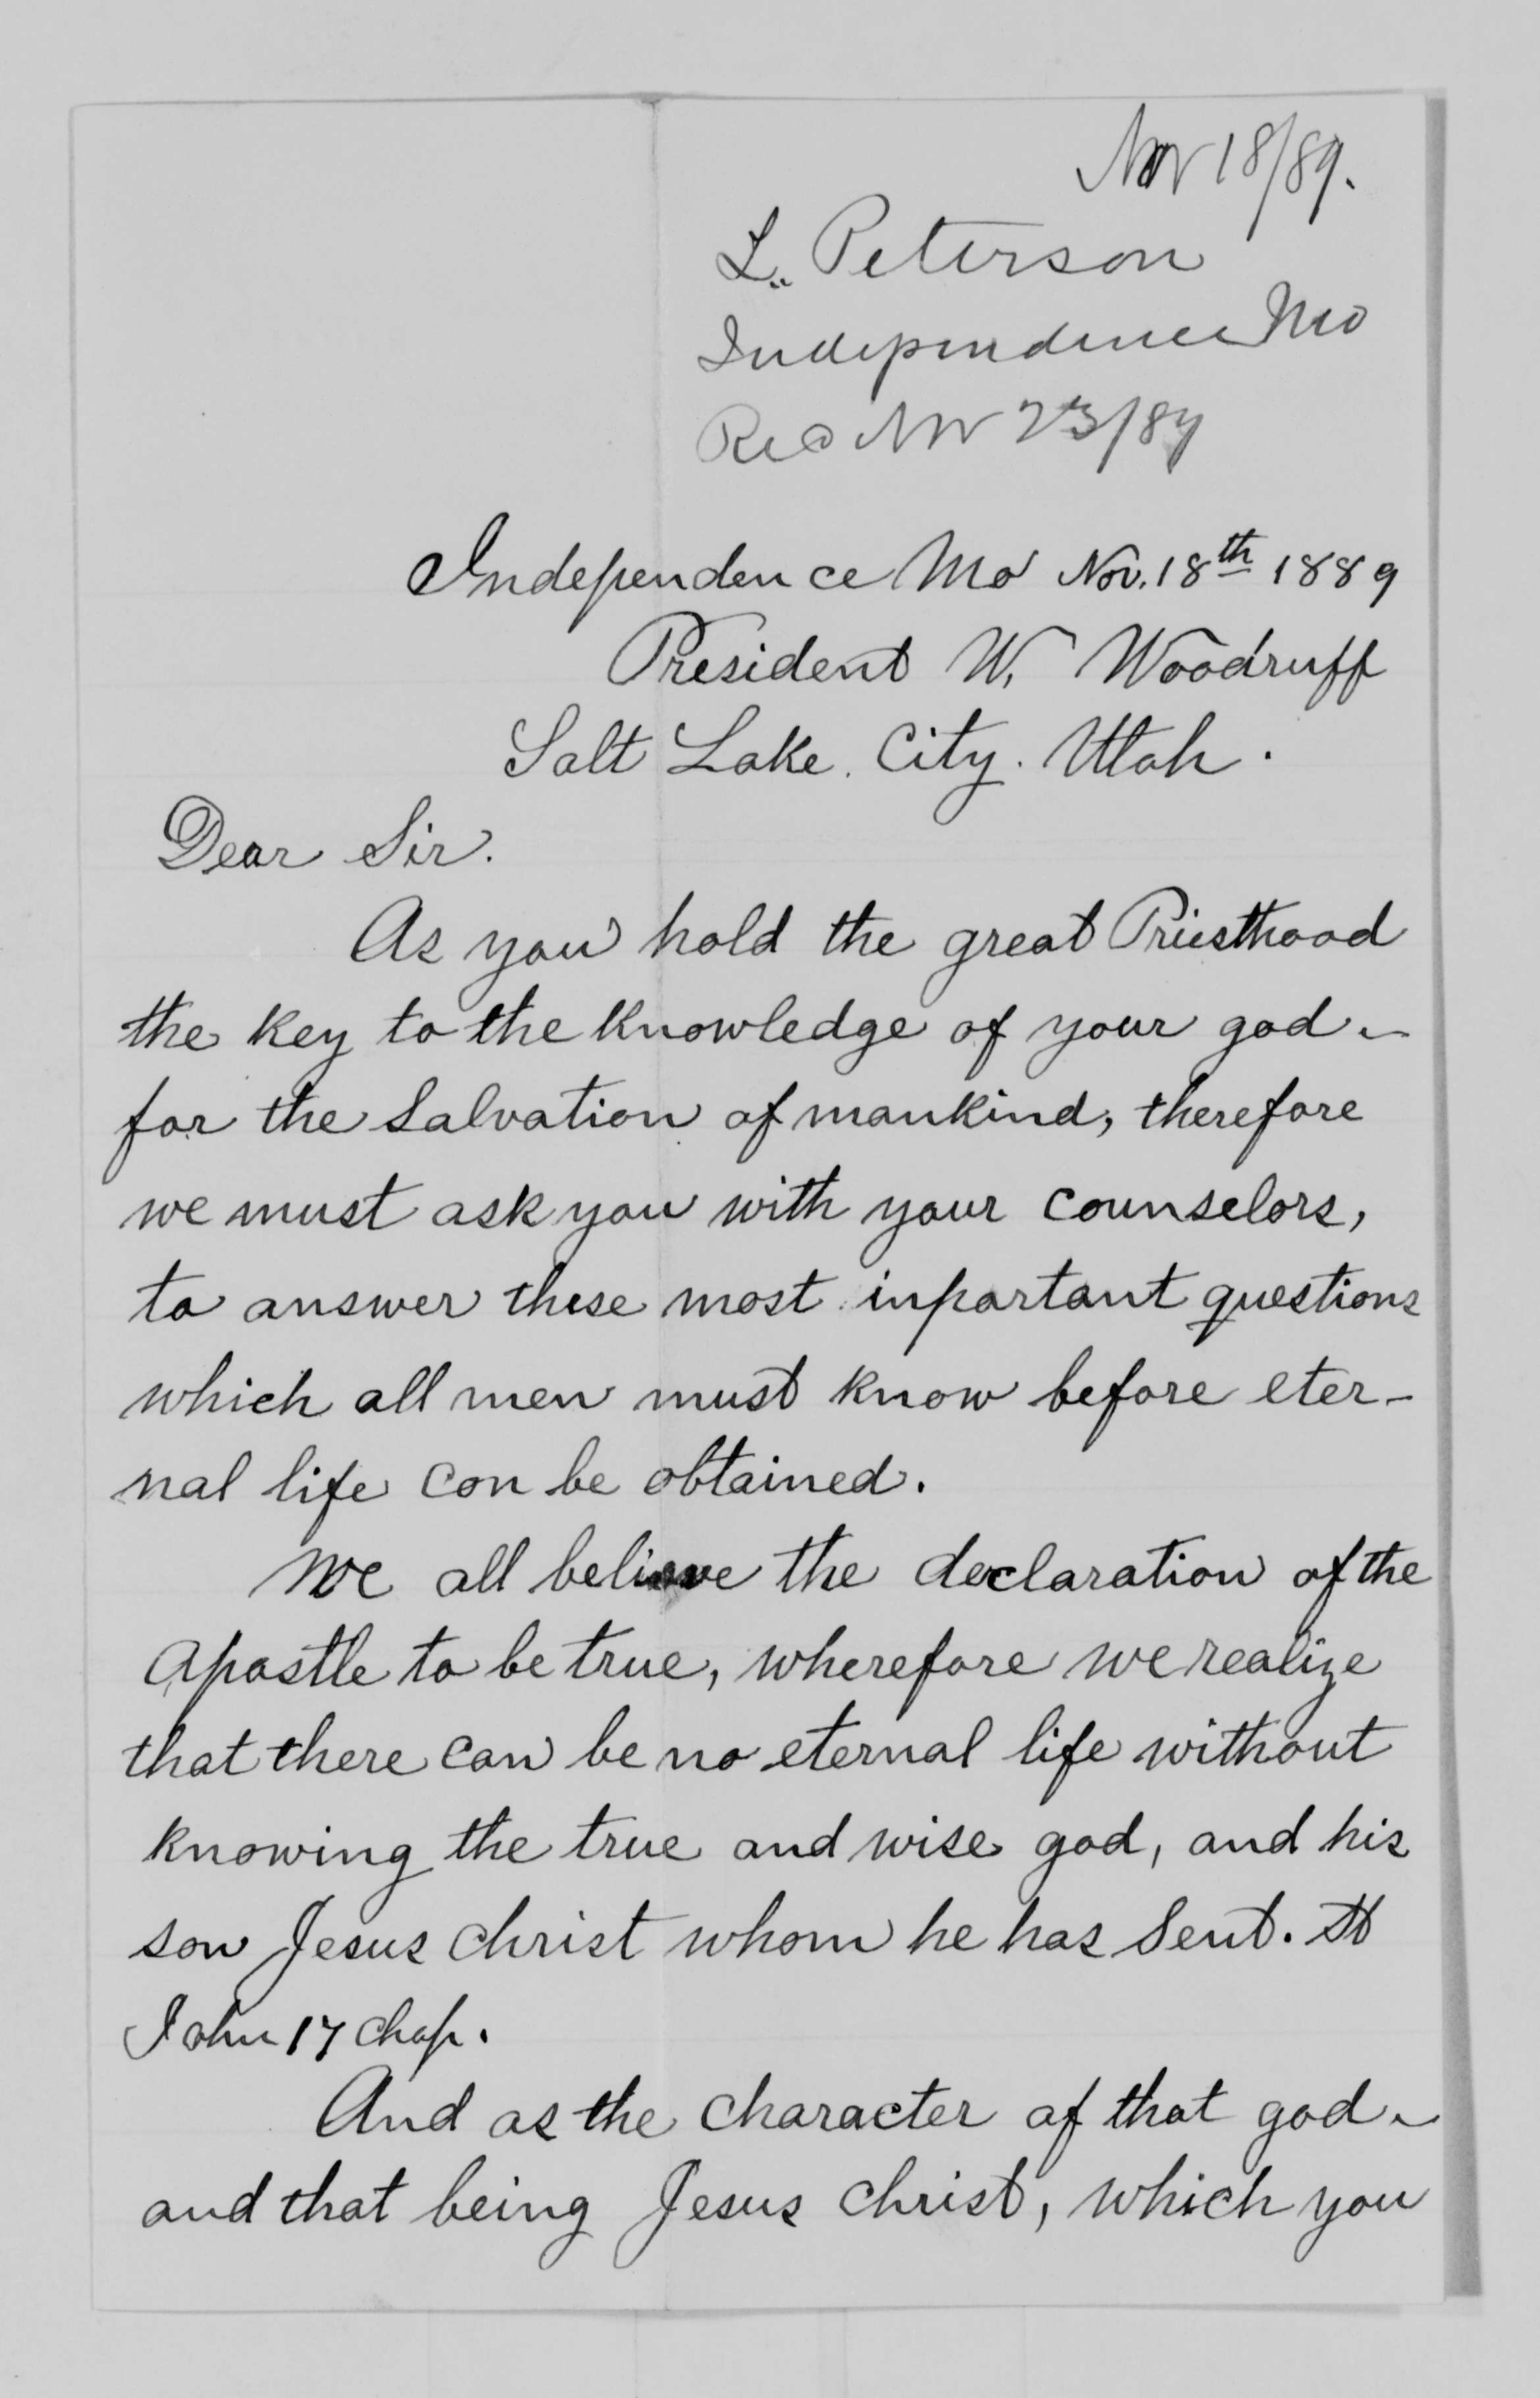 Nov 18/89.
L. Peterson
Independence Mo
Rec Nov 23/89
Independence Mo Nov. 18th 1889
President W. Woodruff
Salt Lake. City. Utah.
Dear Sir.
As you hold the great Priesthood
the key to the knowledge of your god
for the Salvation of mankind, therefore
we must ask you with your counselors,
to answer these most inportant questions
which all men must know before eter-
nal life can be obtained.
We all believe the declaration of the
apostle to be true, wherefore we realize
that there can be no eternal life without
knowing the true and wise god, and his
son Jesus Christ whom he has Sent. St
John 17 chap.
And as the character of that god
and that being Jesus Christ, which you